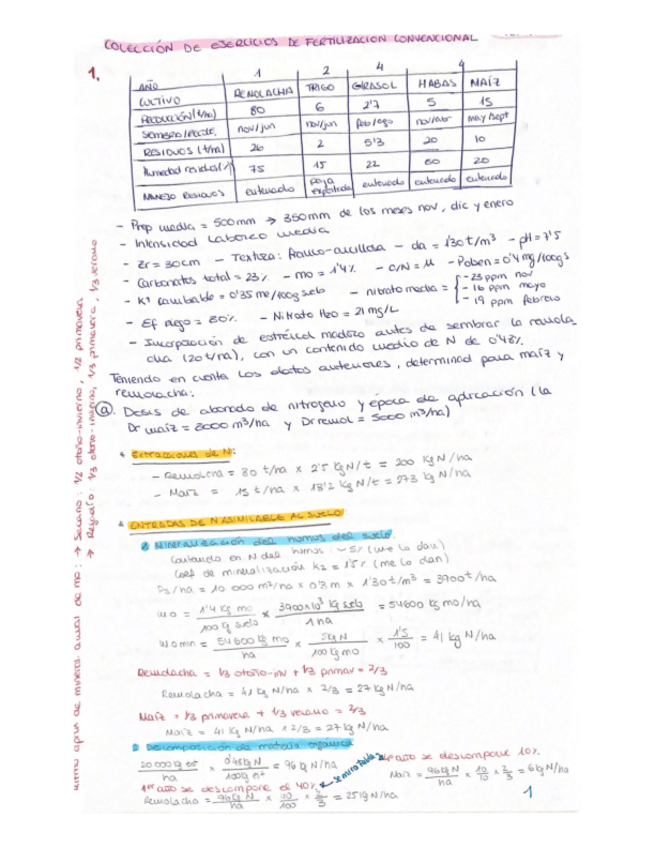 COLECCIÓN DE EJERCICIOS DE FERTILIZACION CONVENCIONAL
1.
AÑO 1 2 4 4
CULTIVO REMOLACHA TRIGO GIRASOL HABAS MAÍZ
PRODUCCIÓN (t/ha) 80 6 2'7 5 15
SIEMBRA/RECOLE. nov/jun nov/jun feb/ago nov/abr may/sept
RESIDUOS (t/ha) 26 2 5'3 20 10
Humedad residuos (%) 75 15 22 60 20
MANEJO RESIDUOS enterrado paja enterrado enterrado enterrado
- Prep media = 500mm → 350mm de los meses nov, dic y enero
- Intensidad Laboreo media
- Zr = 30cm - Textura: franco-arcillosa - da = 1'30 t/m³ - pH = 7'5
- Carbonatos total = 23% - mo = 1'4% - C/N = 11 - Polsen = 0'4 mg/100g s
- K+ cambiable = 0'35 me/100g suelo - nitrato media = - 23 ppm nov
- 16 ppm mayo
- 19 ppm febrero
- Ef riego = 80% - Nitrato H2O = 21 mg/L
- Incorporación de estiércol maduro antes de sembrar la remola
cha (20 t/ha), con un contenido medio de N de 0'48%.
Teniendo en cuenta los datos anteriores, determinad para maíz y
remolacha:
a. Dosis de abonado de nitrógeno y época de aplicación (la
Dr maíz = 8000 m³/ha y Dr remol = 5000 m³/ha)
Extracciones de N:
- Remolacha = 80 t/ha x 2'5 kg N/t = 200 kg N/ha
- Maíz = 15 t/ha x 18'2 kg N/t = 273 kg N/ha
ENTRADAS DE N ASIMILABLE AL SUELO
Mineralización del humus del suelo.
Contenido en N del humus: ~ 5% (me lo dan)
Coef de mineralización K2 = 1'5% (me lo dan)
Ps/ha = 10 000 m²/ha x 0'3 m x 1'30 t/m³ = 3900 t/ha
mo = 1'4 kg mo / 100 kg suelo x 3900x10³ kg suelo / 1 ha = 54600 kg mo/ha
Wo min = 54600 kg mo / ha x 5 kg N / 100 kg mo x 1'5 / 100 = 41 kg N/ha
Remolacha = 1/3 otoño-inv + 1/3 primav = 2/3
Remolacha = 41 kg N/ha x 2/3 = 27 kg N/ha
Maíz = 1/3 primavera + 1/3 verano = 2/3
Maíz = 41 kg N/ha x 2/3 = 27 kg N/ha
Descomposición de materia orgánica
20 000 kg est / ha x 0'48 kg N / 100 kg est = 96 kg N/ha
se mira tabla 2
4º año se descompone 10%
Maíz = 96 kg N / ha x 10 / 10 x 2 / 3 = 6 kg N/ha
1er año se descompone el 40%
Remolacha = 96 kg N / ha x 40 / 100 x 2 / 3 = 25 kg N/ha
1
ritmo aprox de minera. anual de mo: → Secano: 1/2 otoño-invierno, 1/2 primavera
→ Regadío: 1/3 otoño-invierno, 1/3 primavera, 1/3 verano